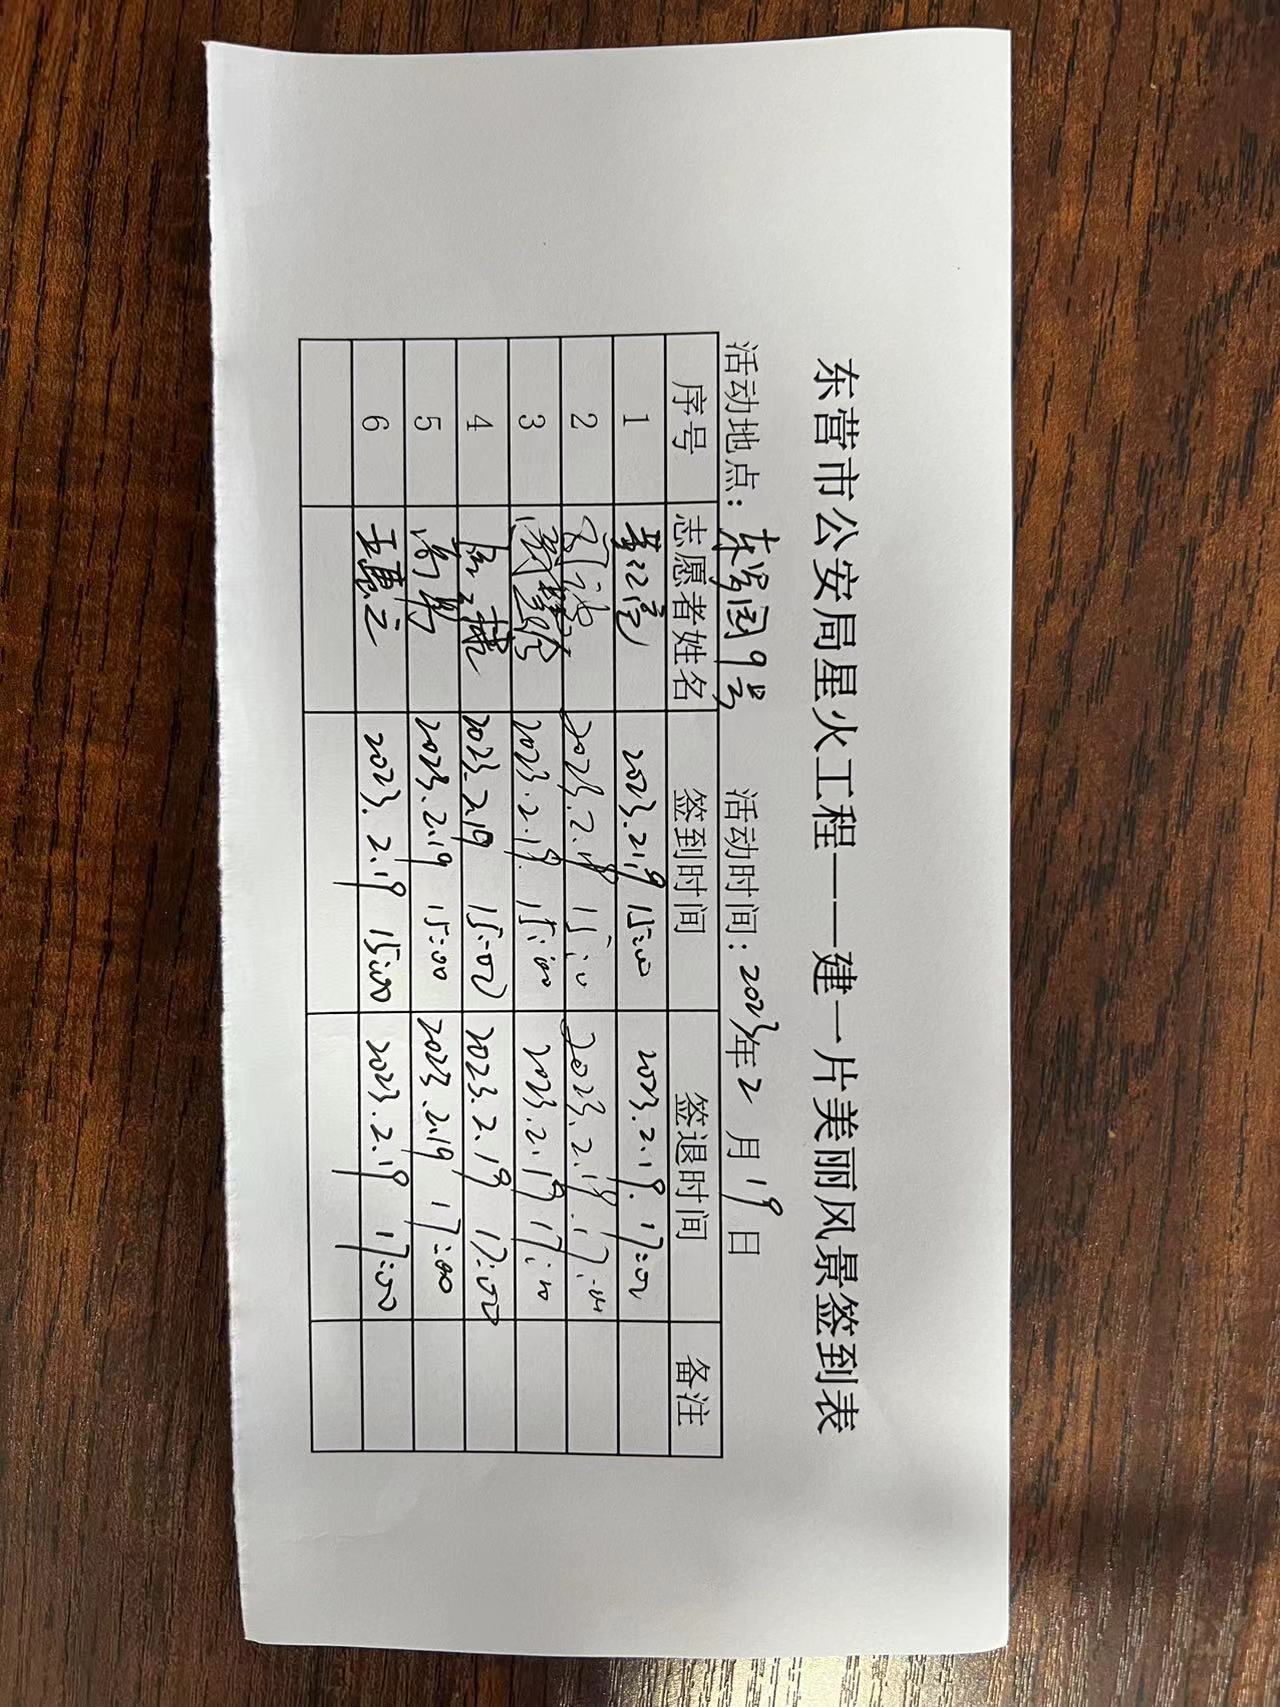 东营市公安局星火工程——建一片美丽风景签到表
活动地点： 9号 活动时间：2023年2月19日
序号 志愿者姓名 签到时间 签退时间 备注
1 2023.2.19 15:00 2023.2.19. 17:00
2 2023.2.19 15:00 2023.2.19. 17:00
3 2023.2.19. 15:00 2023.2.19 17:00
4 2023.2.19 15:00 2023.2.19 17:00
5 2023.2.19 15:00 2023.2.19 17:00
6 王惠之 2023.2.19 15:00 2023.2.19 17:00